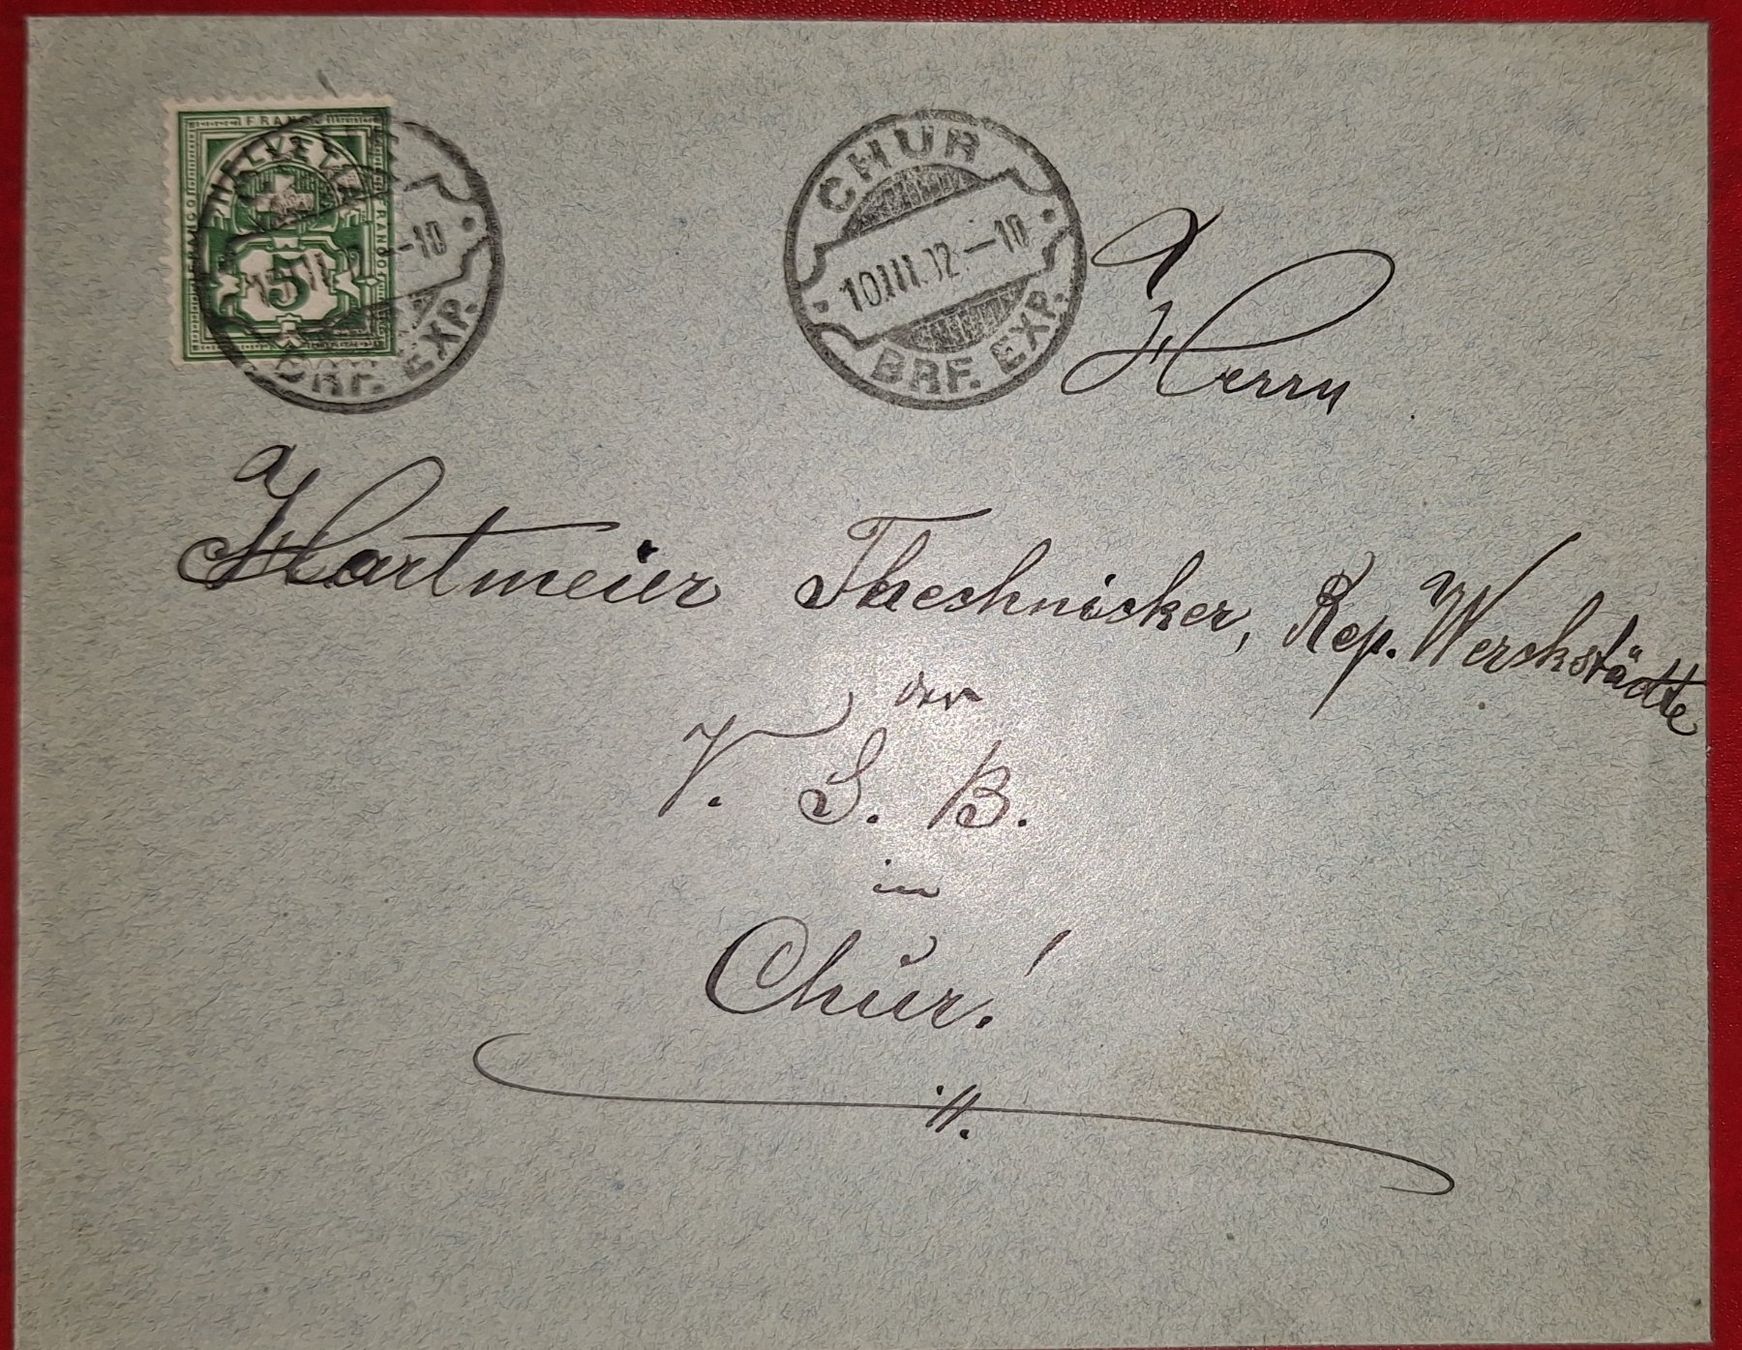 FRANCO
HELVETIA
FRANCO
FRANCO
5
BRF. EXP.
-10
CHUR
10.III.02.-10
BRF. EXP.
Herrn
Hartmeier Thechnicker, Rep. Werckstädte
der
V. S. B.
in
Chur!